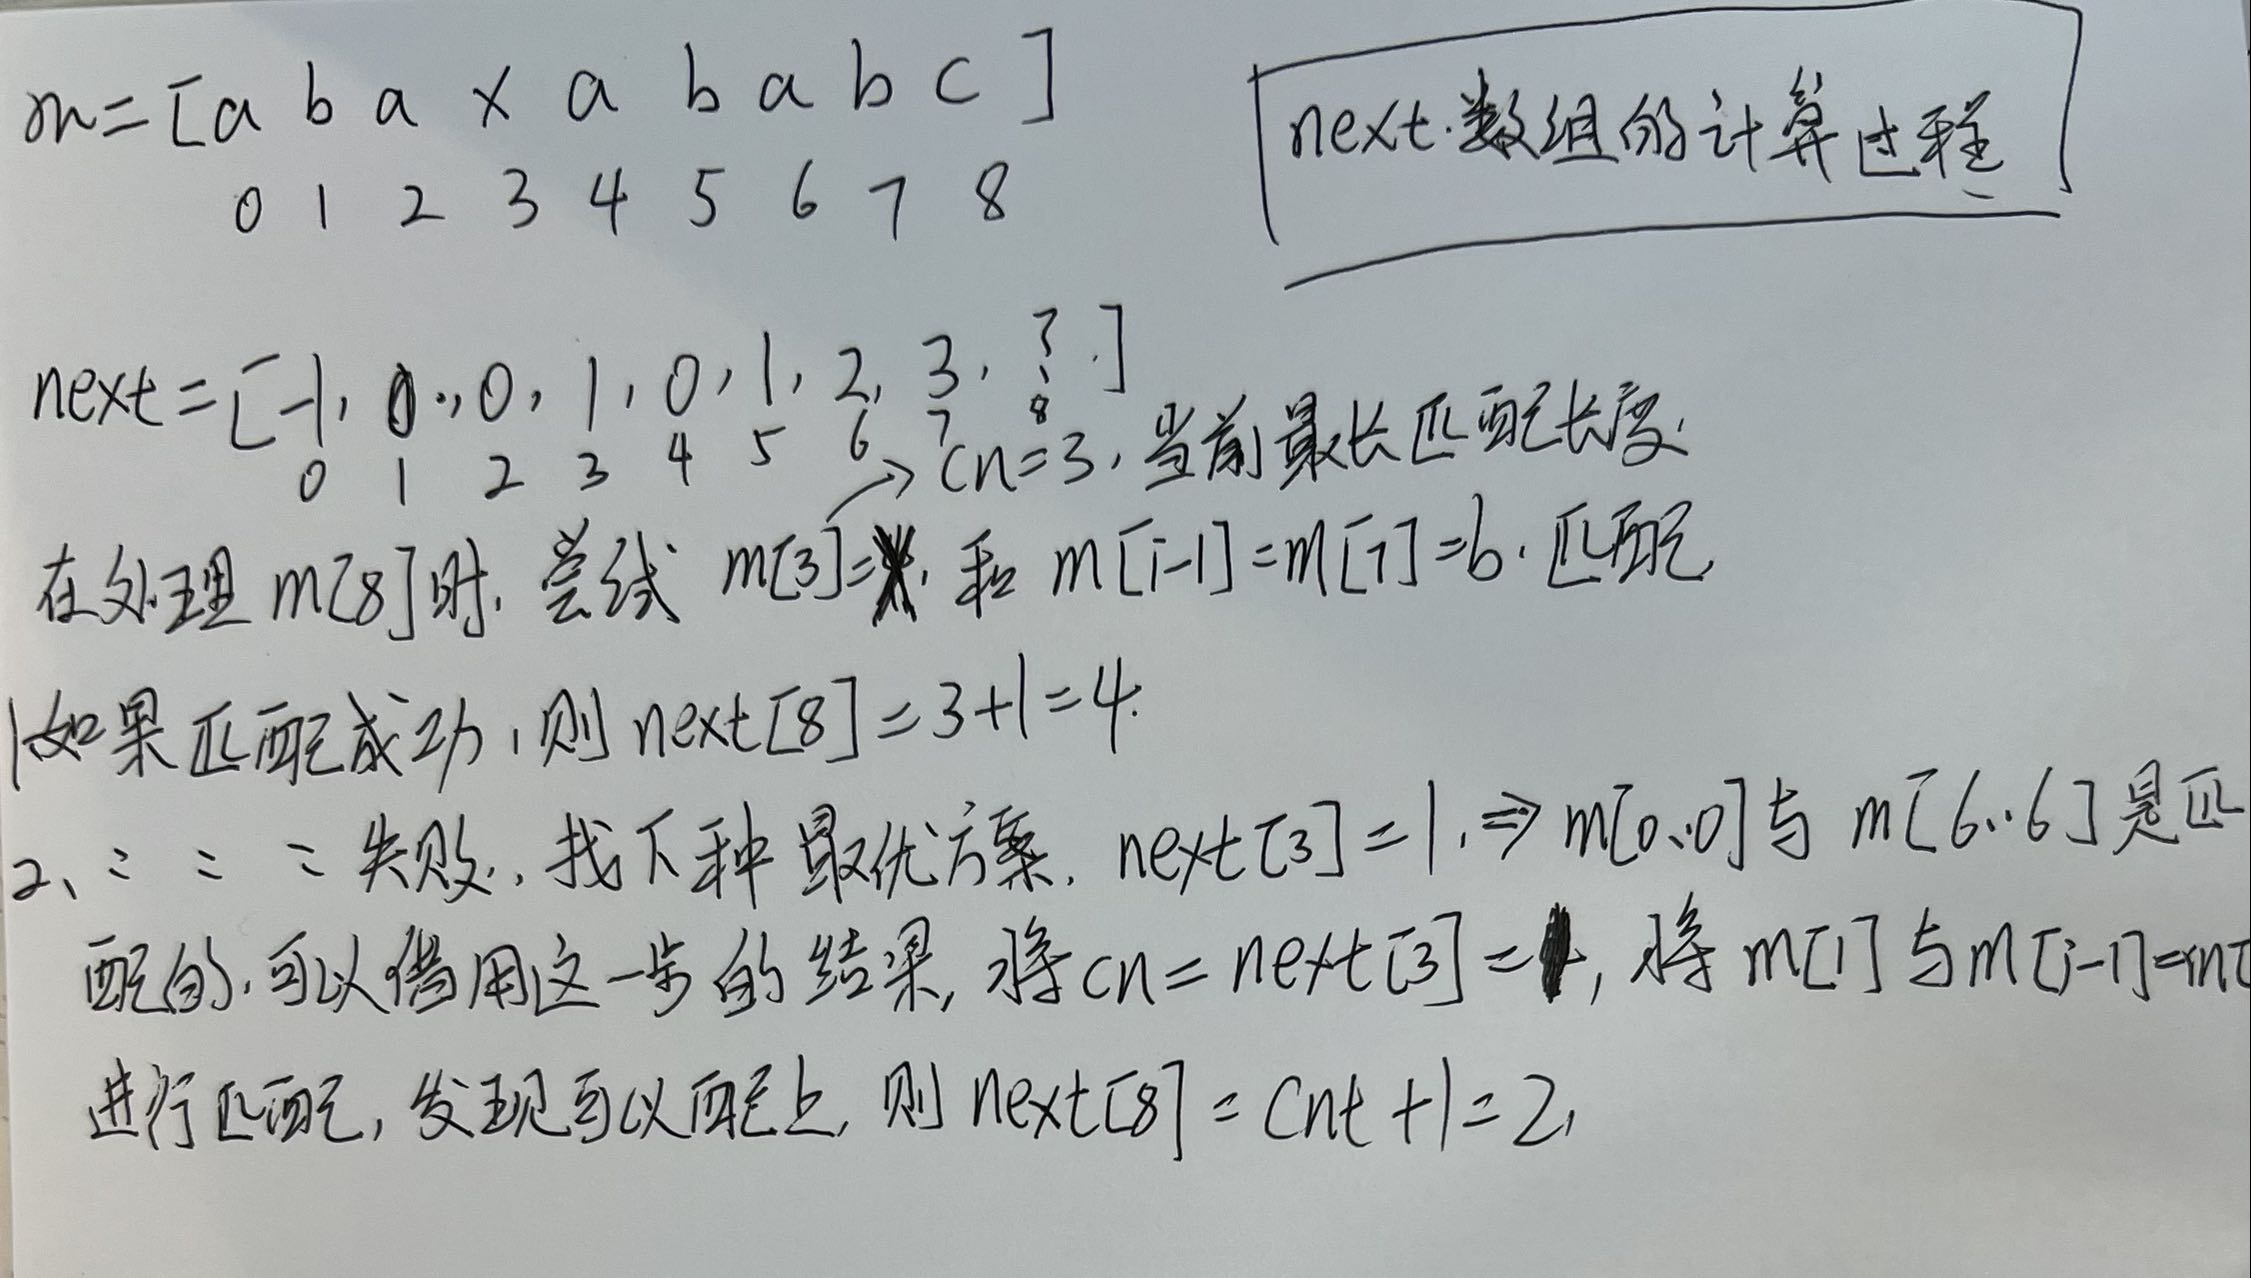 m=[a b a x a b a b c]
0 1 2 3 4 5 6 7 8
next数组的计算过程
next=[-1, 0, 0, 1, 0, 1, 2, 3, ?]
0 1 2 3 4 5 6 7 8
→cn=3, 当前最长匹配长度.
在处理 m[8]时, 尝试 m[3]=x, 和 m[i-1]=m[7]=b. 匹配
1、如果匹配成功, 则 next[8]=3+1=4.
2、= = = 失败, 找下种最优方案, next[3]=1, ⇒ m[0..0]与 m[6..6]是匹
配的, 可以借用这一步的结果, 将cn=next[3]=1, 将 m[1] 与 m[i-1]=m[
进行匹配, 发现可以配上, 则 next[8]=cnt+1=2,